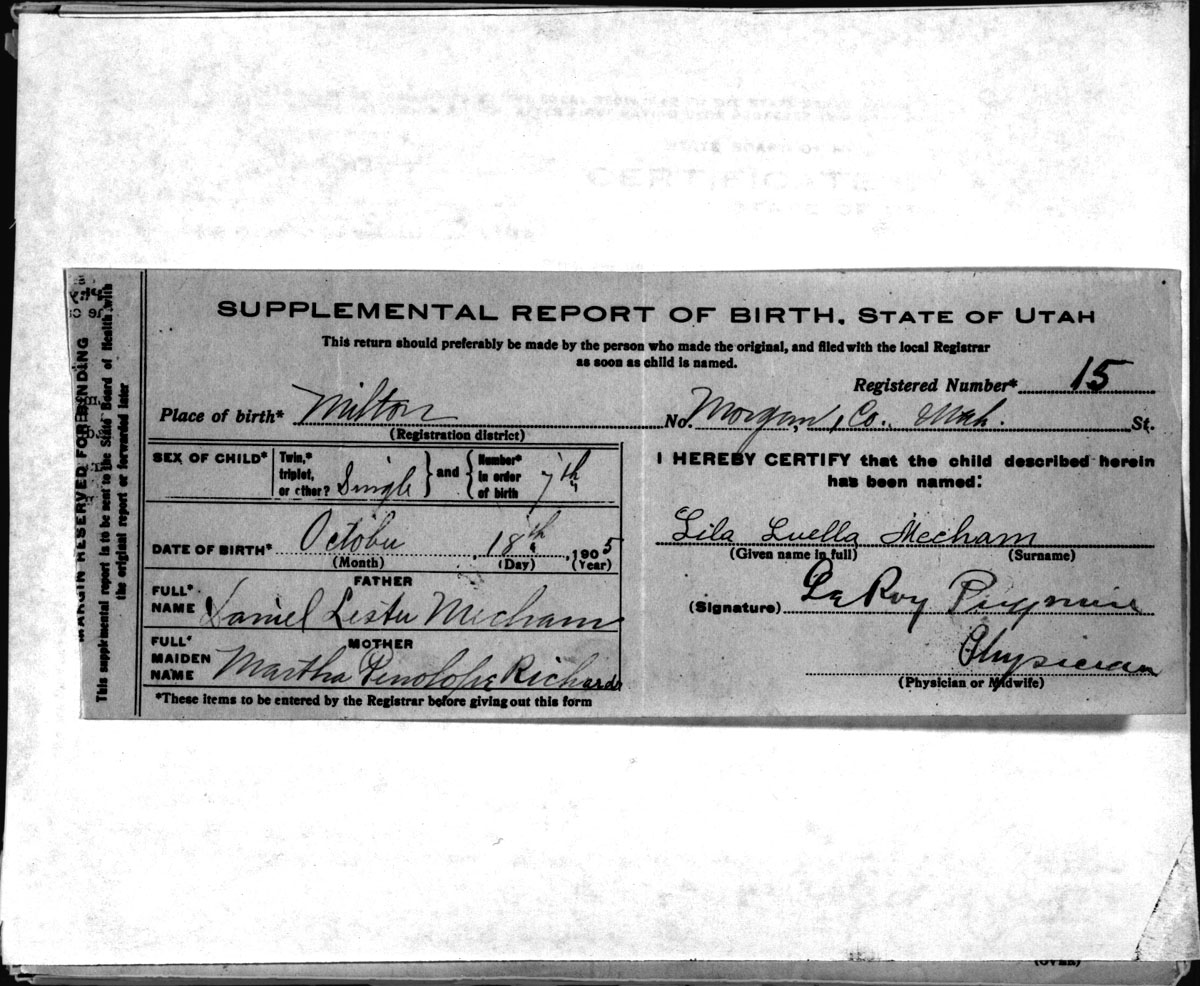 SUPPLEMENTAL REPORT OF BIRTH, STATE OF UTAH
This return should preferably be made by the person who made the original, and filed with the local Registrar
as soon as child is named.
Registered Number* 15
Place of birth* Milton No. Morgan, Co., Utah. St.
(Registration district)
SEX OF CHILD* Twin,* triplet, or other? Single and Number* in order of birth 7th
DATE OF BIRTH* October 18th, 1905
(Month) (Day) (Year)
FATHER
FULL* NAME Daniel Lester Mecham
MOTHER
FULL* MAIDEN NAME Martha Penolope Richards
*These items to be entered by the Registrar before giving out this form
I HEREBY CERTIFY that the child described herein
has been named:
Lila Luella Mecham
(Given name in full) (Surname)
(Signature) LeRoy Pugmire
Physician
(Physician or Midwife)
MARGIN RESERVED FOR BINDING
This supplemental report is to be sent to the State Board of Health with
the original report or forwarded later
(OVER)